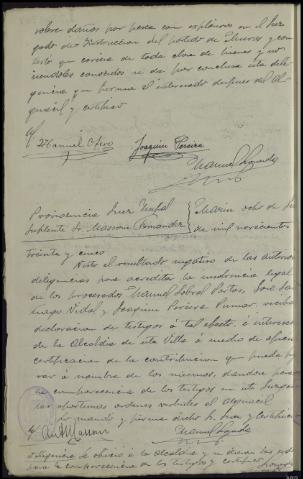 sobre daños por pesca con explosivos en el Juz
gado de Instrucción del partido de
testó que carece de toda clase de bienes y no
siendoles conocidos se da por conclusa esta dili
gencia que firma el interesado despues del Al
guacil y certifico
Manuel Otero Joaquin Pereira
Manuel
Providencia Juez Mupal
Suplente Sr. Massoni Fernandez
Marin ocho de
de mil novecientos
treinta y cinco
Visto el resultado negativo de las anteriores
diligencias para acreditar la insolvencia legal
de los procesados Manuel Sobral Portas, José
Vidal y Joaquin Pereira recibase
declaracion de testigos á tal efecto, é interesese
de la Alcaldia de esta Villa á medio de oficio
certificacion de la contribucion que pueda figu
rar á nombre de los mismos, dandose para
la comparecencia de los testigos en este Juzgado
las oportunas ordenes verbales al alguacil
Lo mandó y firma dicho Sr Juez y certifico
Massoni
Diligencia de oficio á la Alcaldia y
para la comparecencia de los testigos y certifico